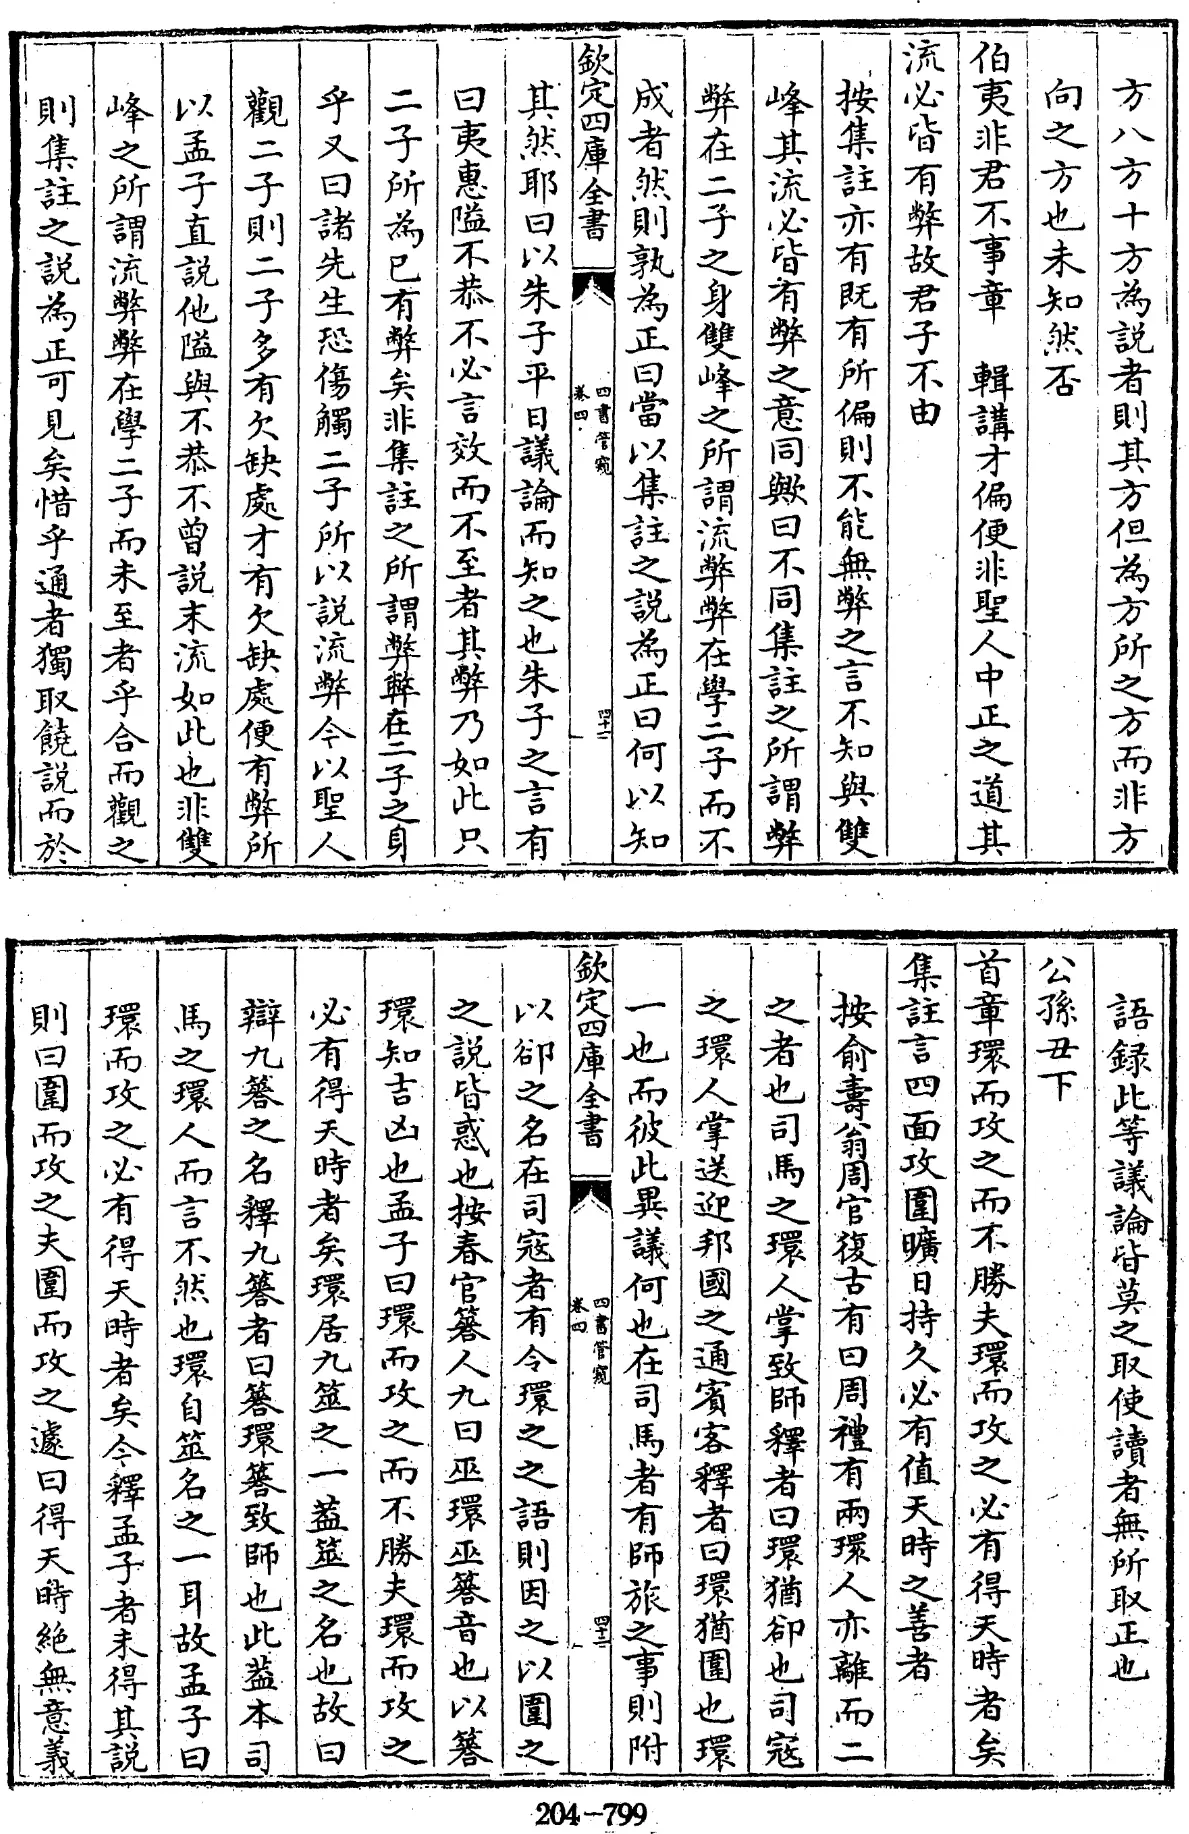 方八方十方為説者則其方但為方所之方而非方
向之方也未知然否
伯夷非君不事章　輯講才偏便非聖人中正之道其
流必皆有弊故君子不由
按集註亦有既有所偏則不能無弊之言不知與雙
峰其流必皆有弊之意同歟曰不同集註之所謂弊
弊在二子之身雙峰之所謂流弊弊在學二子而不
成者然則孰為正曰當以集註之説為正曰何以知
欽定四庫全書
四書管窺
卷四
四十二
其然耶曰以朱子平日議論而知之也朱子之言有
曰夷惠隘不恭不必言效而不至者其弊乃如此只
二子所為已有弊矣非集註之所謂弊弊在二子之身
乎又曰諸先生恐傷觸二子所以説流弊今以聖人
觀二子則二子多有欠缺處才有欠缺處便有弊所
以孟子直説他隘與不恭不曾説末流如此也非雙
峰之所謂流弊弊在學二子而未至者乎合而觀之
則集註之説為正可見矣惜乎通者獨取饒説而於
語録此等議論皆莫之取使讀者無所取正也
公孫丑下
首章環而攻之而不勝夫環而攻之必有得天時者矣
集註言四面攻圍曠日持久必有值天時之善者
按俞壽翁周官復古有曰周禮有兩環人亦離而二
之者也司馬之環人掌致師釋者曰環猶卻也司寇
之環人掌送迎邦國之通賓客釋者曰環猶圍也環
一也而彼此異議何也在司馬者有師旅之事則附
欽定四庫全書
四書管窺
卷四
四十三
以卻之名在司寇者有令環之之語則因之以圍之
之説皆惑也按春官簭人九曰巫環巫簭音也以簭
環知吉凶也孟子曰環而攻之而不勝夫環而攻之
必有得天時者矣環居九筮之一葢筮之名也故曰
辯九簭之名釋九簭者曰簭環簭致師也此葢本司
馬之環人而言不然也環自筮名之一耳故孟子曰
環而攻之必有得天時者矣今釋孟子者未得其説
則曰圍而攻之夫圍而攻之遽曰得天時絶無意義
204-799